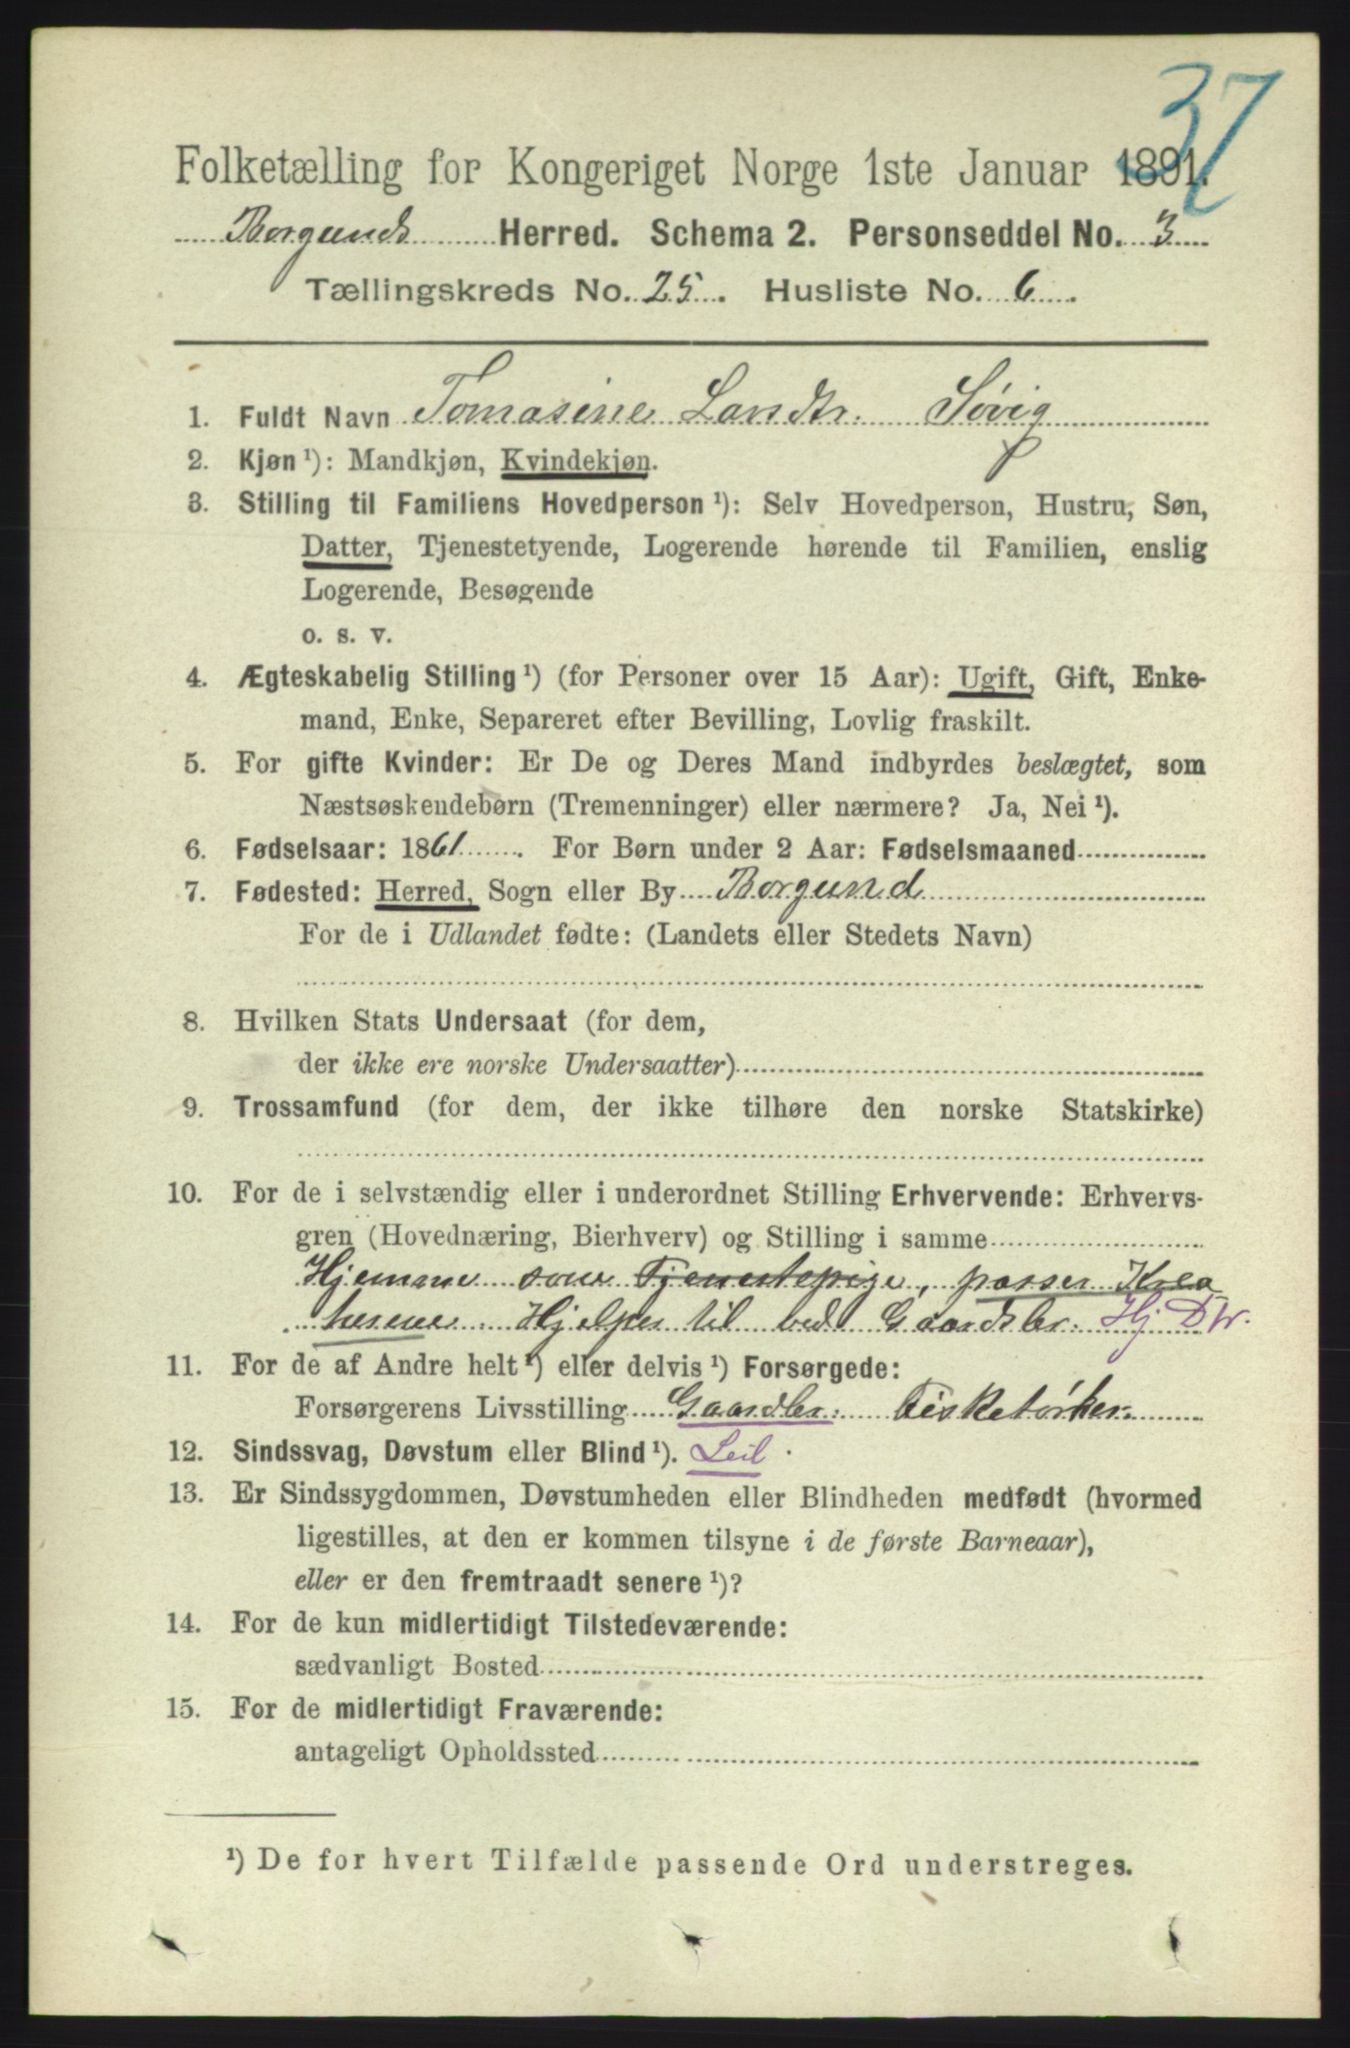 37
Folketælling for Kongeriget Norge 1ste Januar 1891.
Borgunds Herred. Schema 2. Personseddel No. 3
Tællingskreds No. 25. Husliste No. 6.
1. Fuldt Navn Tomasine Larsdtr. Søvig
2. Kjøn ¹): Mandkjøn, Kvindekjøn.
3. Stilling til Familiens Hovedperson ¹): Selv Hovedperson, Hustru, Søn,
Datter, Tjenestetyende, Logerende hørende til Familien, enslig
Logerende, Besøgende
o. s. v.
4. Ægteskabelig Stilling ¹) (for Personer over 15 Aar): Ugift, Gift, Enke-
mand, Enke, Separeret efter Bevilling, Lovlig fraskilt.
5. For gifte Kvinder: Er De og Deres Mand indbyrdes beslægtet, som
Næstsøskendebørn (Tremenninger) eller nærmere? Ja, Nei ¹).
6. Fødselsaar: 1861. For Børn under 2 Aar: Fødselsmaaned
7. Fødested: Herred, Sogn eller By Borgund
For de i Udlandet fødte: (Landets eller Stedets Navn)
8. Hvilken Stats Undersaat (for dem,
der ikke ere norske Undersaatter)
9. Trossamfund (for dem, der ikke tilhøre den norske Statskirke)
10. For de i selvstændig eller i underordnet Stilling Erhvervende: Erhvervs-
gren (Hovednæring, Bierhverv) og Stilling i samme
Hjemme som Tjenestepige, passer Krea
turene. Hjelper til ved Gaardsbr. Hj Dtr.
11. For de af Andre helt ¹) eller delvis ¹) Forsørgede:
Forsørgerens Livsstilling Gaardbr. Fisketørker.
12. Sindssvag, Døvstum eller Blind ¹). Leil.
13. Er Sindssygdommen, Døvstumheden eller Blindheden medfødt (hvormed
ligestilles, at den er kommen tilsyne i de første Barneaar),
eller er den fremtraadt senere ¹)?
14. For de kun midlertidigt Tilstedeværende:
sædvanligt Bosted
15. For de midlertidigt Fraværende:
antageligt Opholdssted
¹) De for hvert Tilfælde passende Ord understreges.